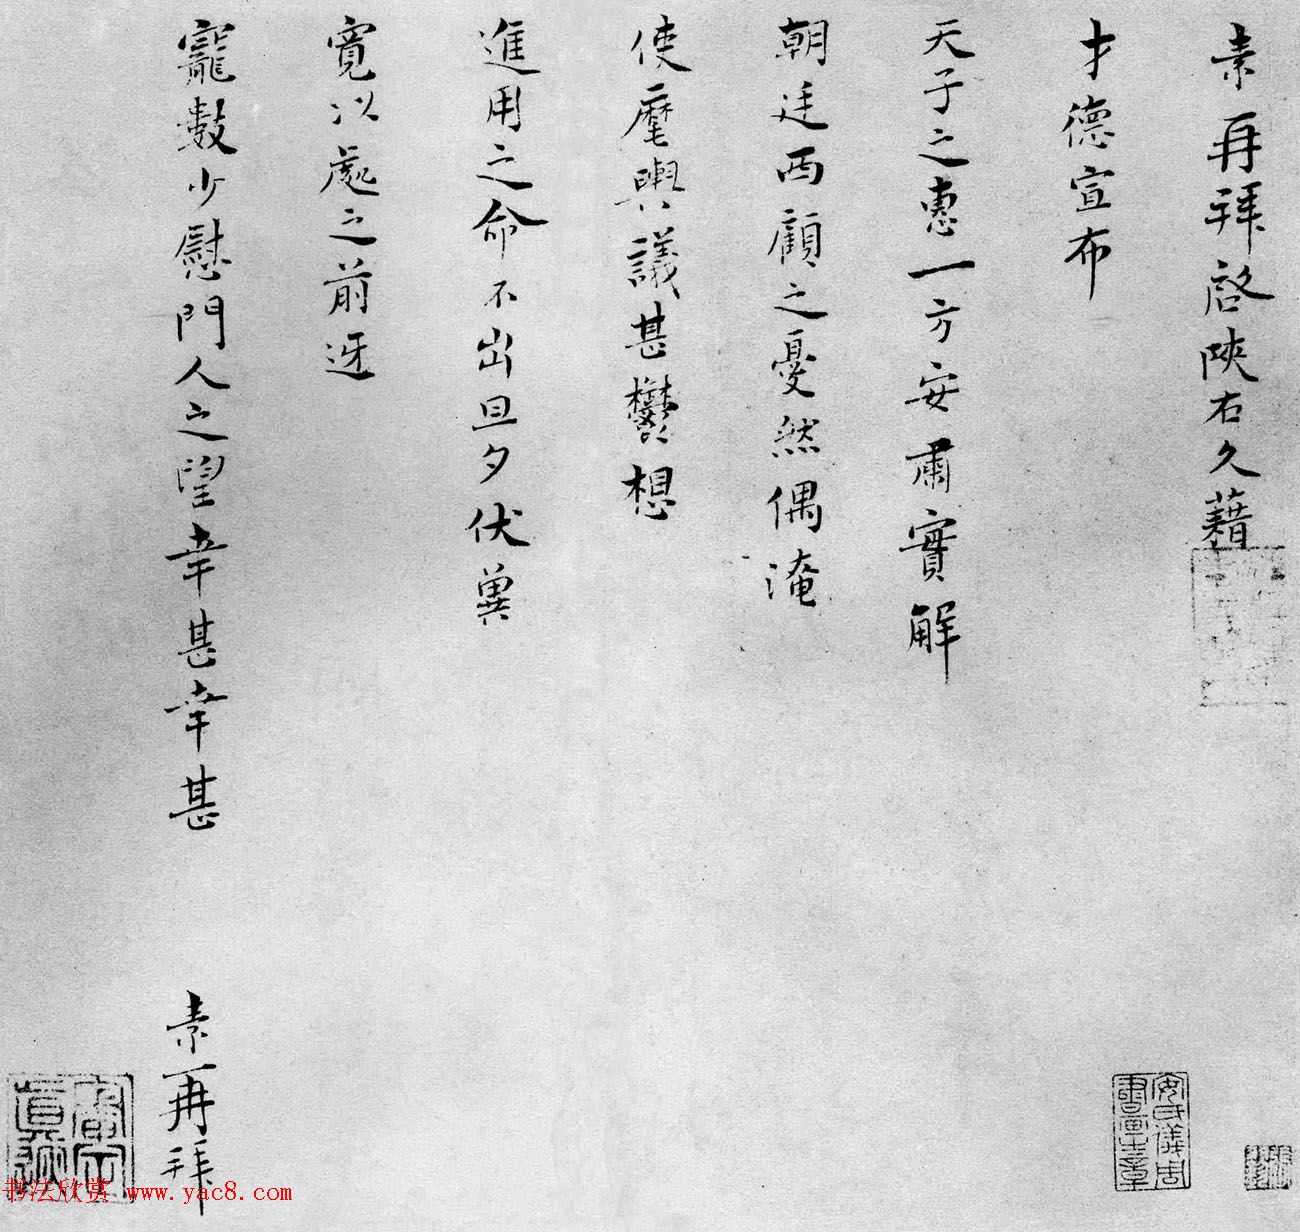 素再拜啓陝右久藉
才德宣布
天子之惠一方安肅實解
朝廷西顧之憂然偶淹
使麾輿議甚鬱想
進用之命不出旦夕伏冀
寬以處之前迓
寵數少慰門人之望幸甚幸甚
素再拜
安氏儀周書畫之章
书法欣赏 www.yac8.com